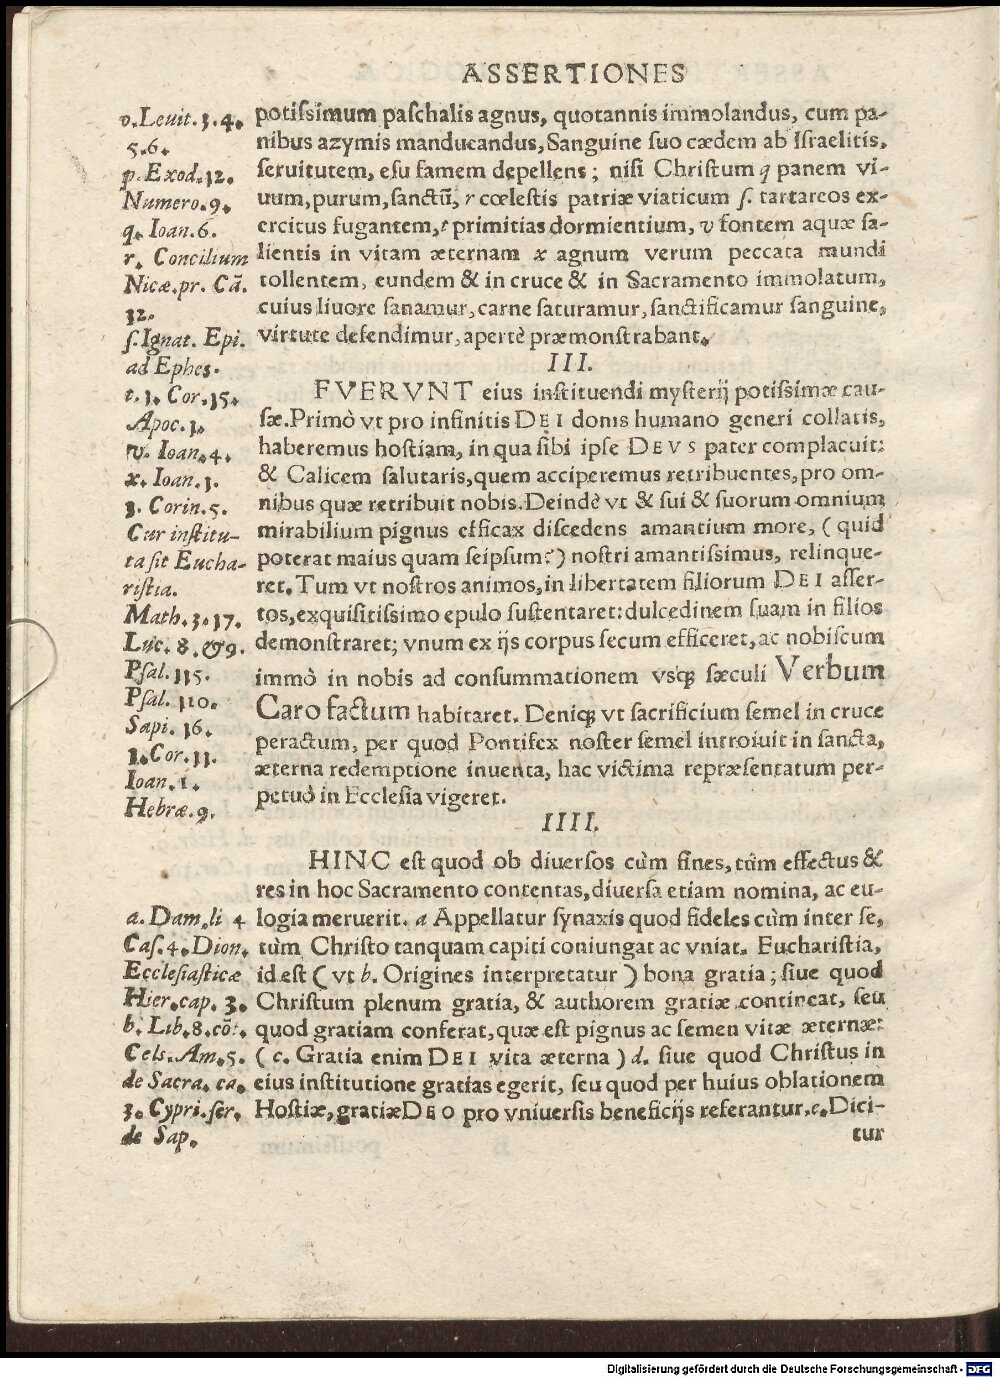 ASSERTIONES
o. Leuit. 3. 4.
5. 6.
p. Exod. 12.
Numero. 9.
q. Ioan. 6.
r. Concilium
Nicæ. pr. Cā.
32.
ſ. Ignat. Epi.
ad Ephes.
t. 1. Cor. 15.
Apoc. 1.
v. Ioan. 4.
x. Ioan. 1.
1. Corin. 5.
Cur inſtitu-
ta ſit Eucha-
riſtia.
Math. 3. 17.
Luc. 8. & 9.
Pſal. 115.
Pſal. 110.
Sapi. 16.
1. Cor. 11.
Ioan. 1.
Hebræ. 9.
potiſsimum paſchalis agnus, quotannis immolandus, cum pa-
nibus azymis manducandus, Sanguine ſuo cædem ab Iſraelitis,
ſeruitutem, eſu famem depellens; niſi Chriſtum q panem vi-
uum, purum, ſanctū, r cœleſtis patriæ viaticum ſ. tartareos ex-
ercitus fugantem, t primitias dormientium, v fontem aquæ ſa-
lientis in vitam æternam x agnum verum peccata mundi
tollentem, eundem & in cruce & in Sacramento immolatum,
cuius liuore ſanamur, carne ſaturamur, ſanctificamur ſanguine,
virtute defendimur, apertè præmonſtrabant.
III.
FVERVNT eius inſtituendi myſterij potiſsimæ cau-
ſæ. Primò vt pro infinitis DEI donis humano generi collatis,
haberemus hoſtiam, in qua ſibi ipſe DEVS pater complacuit:
& Calicem ſalutaris, quem acciperemus retribuentes, pro om-
nibus quæ retribuit nobis. Deindè vt & ſui & ſuorum omnium
mirabilium pignus efficax diſcedens amantium more, (quid
poterat maius quam ſeipſum?) noſtri amantiſsimus, relinque-
ret. Tum vt noſtros animos, in libertatem filiorum DEI aſſer-
tos, exquiſitiſsimo epulo ſuſtentaret: dulcedinem ſuam in filios
demonſtraret; vnum ex ijs corpus ſecum efficeret, ac nobiſcum
immò in nobis ad conſummationem vsq; ſæculi Verbum
Caro factum habitaret. Deniq; vt ſacrificium ſemel in cruce
peractum, per quod Pontifex noſter ſemel introiuit in ſancta,
æterna redemptione inuenta, hac victima repræſentatum per-
petuò in Eccleſia vigeret.
IIII.
HINC eſt quod ob diuerſos cùm fines, tùm effectus &
res in hoc Sacramento contentas, diuerſa etiam nomina, ac eu-
logia meruerit. a Appellatur ſynaxis quod fideles cùm inter ſe,
tùm Chriſto tanquam capiti coniungat ac vniat. Euchariſtia,
id eſt (vt b. Origines interpretatur) bona gratia; ſiue quod
Chriſtum plenum gratia, & authorem gratiæ contineat, ſeu
quod gratiam conferat, quæ eſt pignus ac ſemen vitæ æternæ:
(c. Gratia enim DEI vita æterna) d. ſiue quod Chriſtus in
eius inſtitutione gratias egerit, ſeu quod per huius oblationem
Hoſtiæ, gratiæ DEO pro vniuerſis beneficijs referantur. e. Dici-
tur
a. Dam. li 4
Caſ. 4. Dion.
Eccleſiaſticæ
Hier. cap. 3.
b. Lib. 8. cō:.
Cels. Am. 5.
de Sacra. ca.
3. Cypri. ſer.
de Sap.
Digitalisierung gefördert durch die Deutsche Forschungsgemeinschaft - DFG